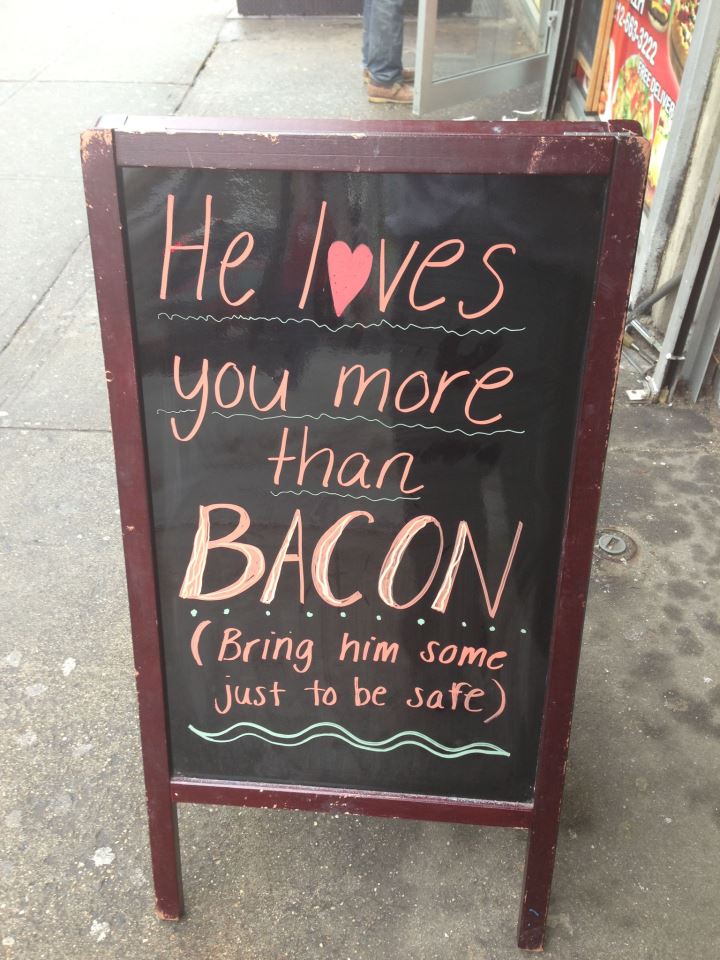 He loves
you more
than
BACON
(Bring him some
just to be safe)
12-663-3222
FREE DELIVER